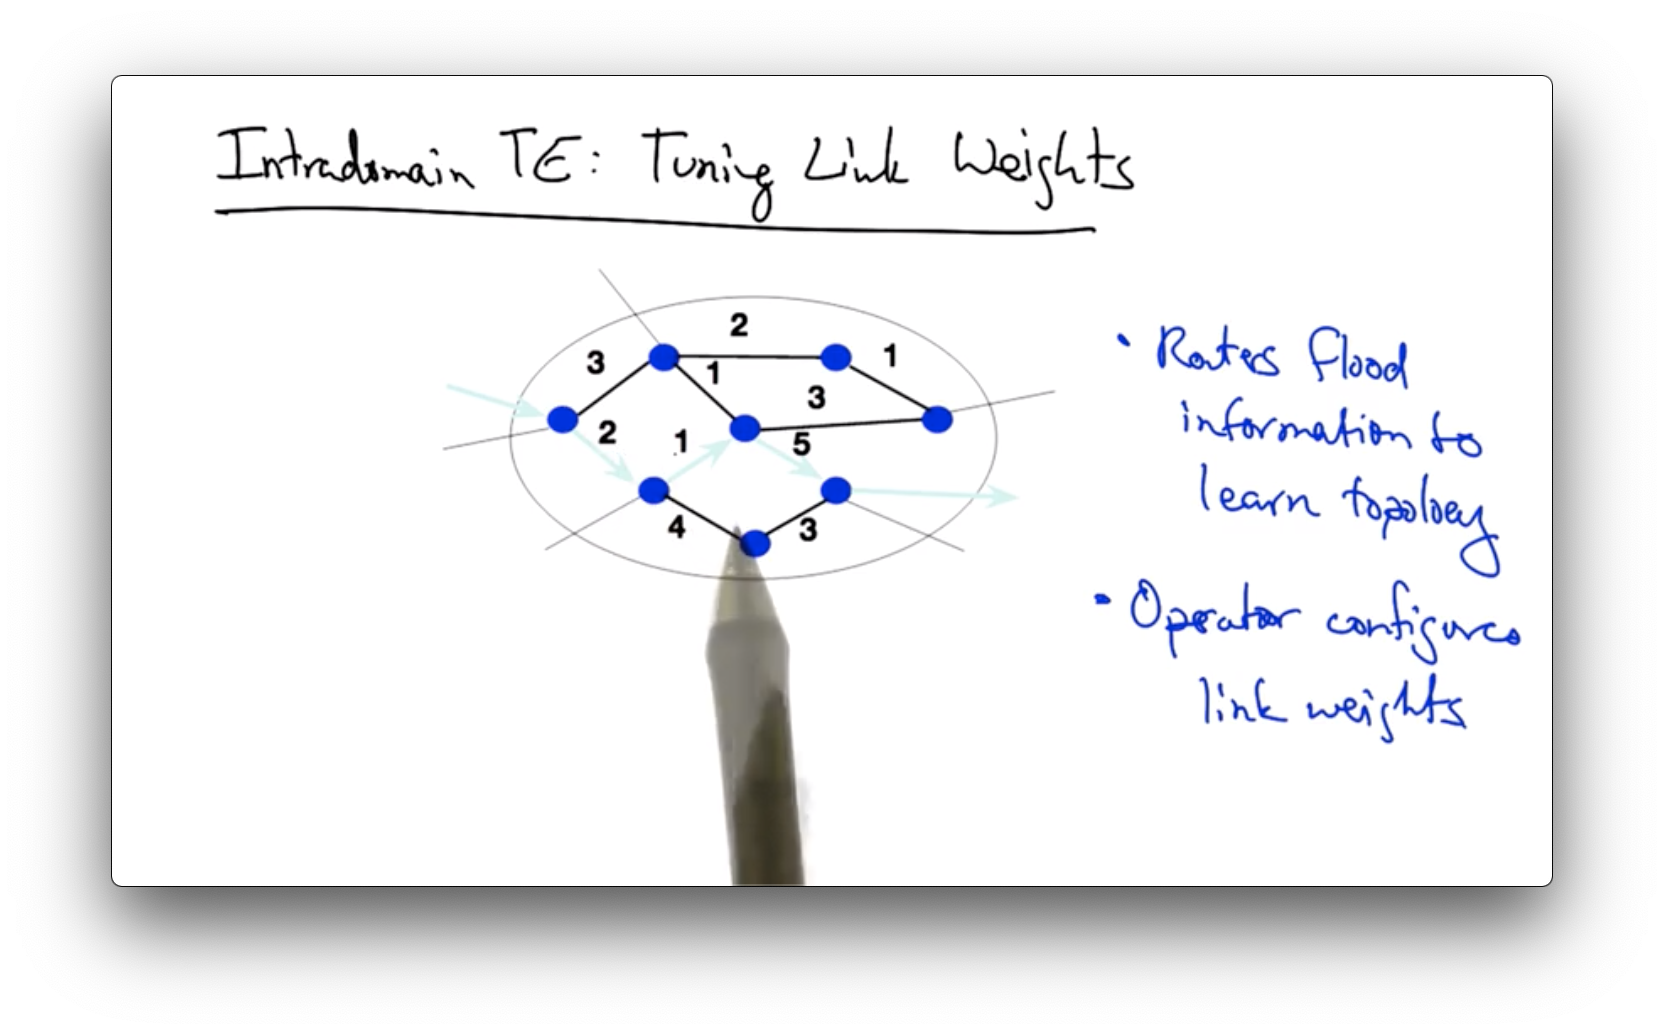 Intradomain TE: Tuning Link Weights
2
3
1
1
3
2
1
5
4
3
• Routers flood
information to
learn topology
• Operator configures
link weights